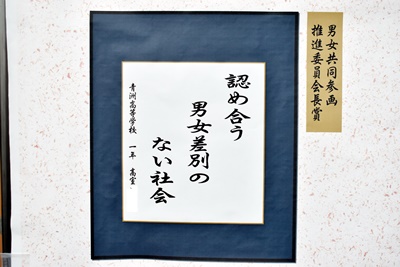 男女共同参画
推進委員会長賞
認め合う
男女差別の
ない社会
青洲高等学校 一年 高室